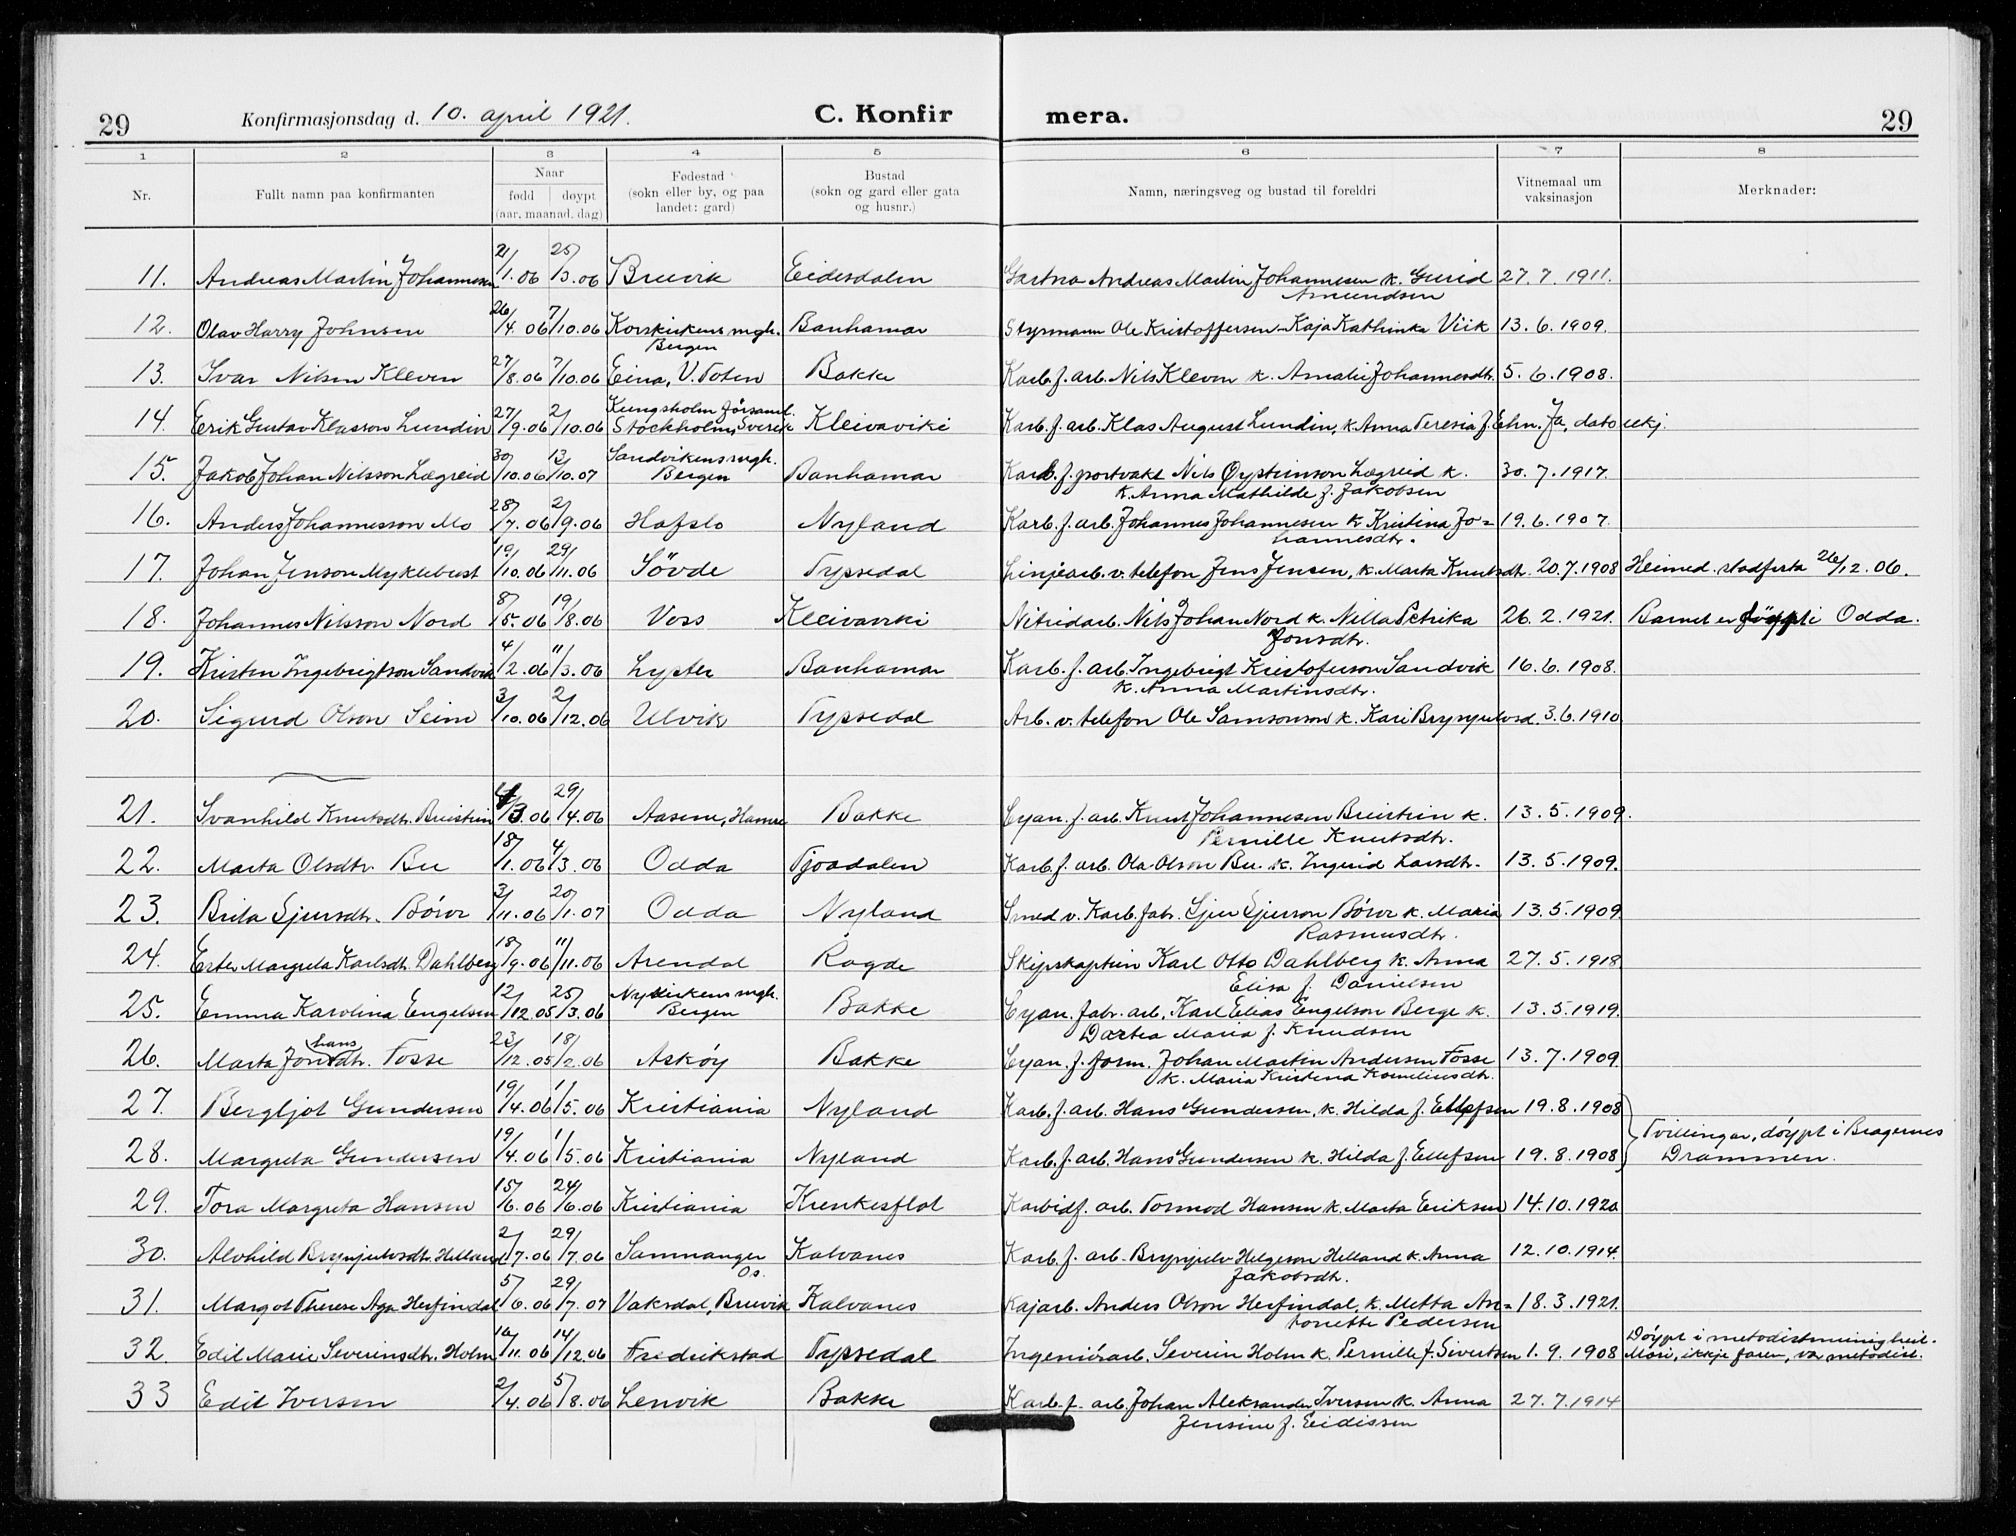 29 Konfirmasjonsdag d. 10. april 1921. C. Konfir mera. 29
1 2 3 4 5 6 7 8
Nr. Fullt namn paa konfirmanten Naar fødd døypt (aar, maanad, dag) Fødestad (sokn eller by, og paa landet: gard) Bustad (sokn og gard eller gata og husnr.) Namn, næringsveg og bustad til foreldri Vitnemaal um vaksinasjon Merknader:
11. Andreas Martin Johannesen 21/1.06 25/3.06 Brevik Eidesdalen Gartnar Andreas Martin Johannesen k. Gurid 27.7.1911.
Amundsen
12. Olav Harry Johnsen 26/4.06 7/10.06 Korskirkens mgh. Banhamar Styrmann Ole Kristoffersen - Kaja Kathinka Viik 13.6.1909.
Bergen
13. Ivar Nilsen Kleven 27/8.06 7/10.06 Eina, V. Toten Bakke Karb. f. arb. Nils Kleven k. Amalie Johannesdtr. 5.6.1908.
Kungsholm församl.
14. Erik Gustav Klasson Lundin 27/9.06 2/10.06 Stockholm, Sverik Kleivaviki Karb. f. arb. Klas August Lundin, k. Anna Teresia f. Ehn. Ja, dato ukj.
Sandvikens mgh.
15. Jakob Johan Nilsson Lægreid 30/10.06 13/10.07 Bergen Banhamar Karb. f. portvakt Nils Øysteinson Lægreid k. 30.7.1917.
k. Anna Mathilde f. Jakobsen
16. Anders Johannesson Mo 28/7.06 2/9.06 Hafslo Nyland Karb. f. arb. Johannes Johannesen k. Kristina Jo= 19.6.1907.
hannesdtr.
17. Johan Jenson Myklebust 19/10.06 29/11.06 Sövde Typsedal Linjearb. v. telefon Jens Jensen, k. Marta Knutsdtr. 20.7.1908 Heimed. stadfesta 26/12.06.
18. Johannes Nilsson Nord 8/5.06 19/8.06 Voss Kleivaviki Nitridarb. Nils Johan Nord k. Nilla Petrika 26.2.1921. Barnet er döypt i Odda.
Jonsdtr.
19. Kristen Ingebrigtson Sandvik 4/2.06 11/3.06 Lyster Banhamar Karb. f. arb. Ingebrigt Kristoferson Sandvik 16.6.1908.
k. Anna Martinsdtr.
20. Sigurd Olson Seim 3/10.06 2/12.06 Ulvik Typsedal Arb. v. telefon Ole Samsonson k. Kari Brynjulvsd. 3.6.1910
21. Svanhild Knutsdtr. Breistein 3.06 29/4.06 Aasene, Hamre Bakke Cyan. f. arb. Knut Johanneson Breistein k. 13.5.1909.
Pernille Knutsdtr.
22. Marta Olsdtr. Bu 18/1.06 4/3.06 Odda Tjoadalen Karb. f. arb. Ola Olson Bu k. Ingerid Larsdtr. 13.5.1909.
23. Brita Sjursdtr. Börve 3/11.06 20/1.07 Odda Nyland Smed v. Karb. fabr. Sjur Sjurson Börve k. Maria 13.5.1909
Rasmusdtr.
24. Ester Margreta Karlsdtr. Dahlberg 18/9.06 11/11.06 Arendal Ragde Skipskaptein Karl Otto Dahlberg k. Anna 27.5.1918
Elisa f. Danielsen
Nykirkens mgh.
25. Emma Karolina Engelsen 12/12.05 25/3.06 Bergen Bakke Cyan. fabr. arb. Karl Elias Engelson Berge k. 13.5.1919.
Dortea Maria f. Knudsen
hans
26. Marta Jonsdtr. Fosse 23/12.05 18/2.06 Asköy Bakke Cyan. f. form. Johan Martin Andersen Fosse 13.7.1909.
k. Maria Kristina Korneliusdtr.
27. Bergljot Gundersen 19/4.06 1/5.06 Kristiania Nyland Karb. f. arb. Hans Gundersen, k. Hilda f. Ellefsen 19.8.1908
Tvillingar, döypt i Bragernes
28. Margreta Gundersen 19/4.06 1/5.06 Kristiania Nyland Karb. f. arb. Hans Gundersen k. Hilda f. Ellefsen 19.8.1908 Drammen.
29. Tora Margreta Hansen 15/6.06 24/6.06 Kristiania Krenkesflot Karbidf. arb. Tormod Hansen k. Marta Eriksen 14.10.1920
30. Alvhild Brynjulvsdtr. Helland 2/7.06 29/7.06 Samnanger Kalvanes Karb. f. arb. Brynjulv Helgeson Helland k. Anna 12.10.1914.
Os. Jakobsdtr.
31. Margot Therese Aga Herfindal 5/6.06 29/7.07 Vaksdal, Bruvik Kalvanes Kajarb. Anders Olson Herfindal, k. Metta An= 18.3.1921.
tonette Pedersen
32. Edit Marie Severinsdtr. Holm 16/11.06 14/12.06 Fredrikstad Typsedal Ingeniörarb. Severin Holm k. Pernille f. Sivertsen 1.9.1908 Döypt i metodistmenigheit.
Mori, ikkje faren, var metodist.
33 Edit Iversen 2/4.06 5/8.06 Lenvik Bakke Karb. f. arb. Johan Aleksander Iversen k. Anna 27.7.1914
Jensine f. Eidissen